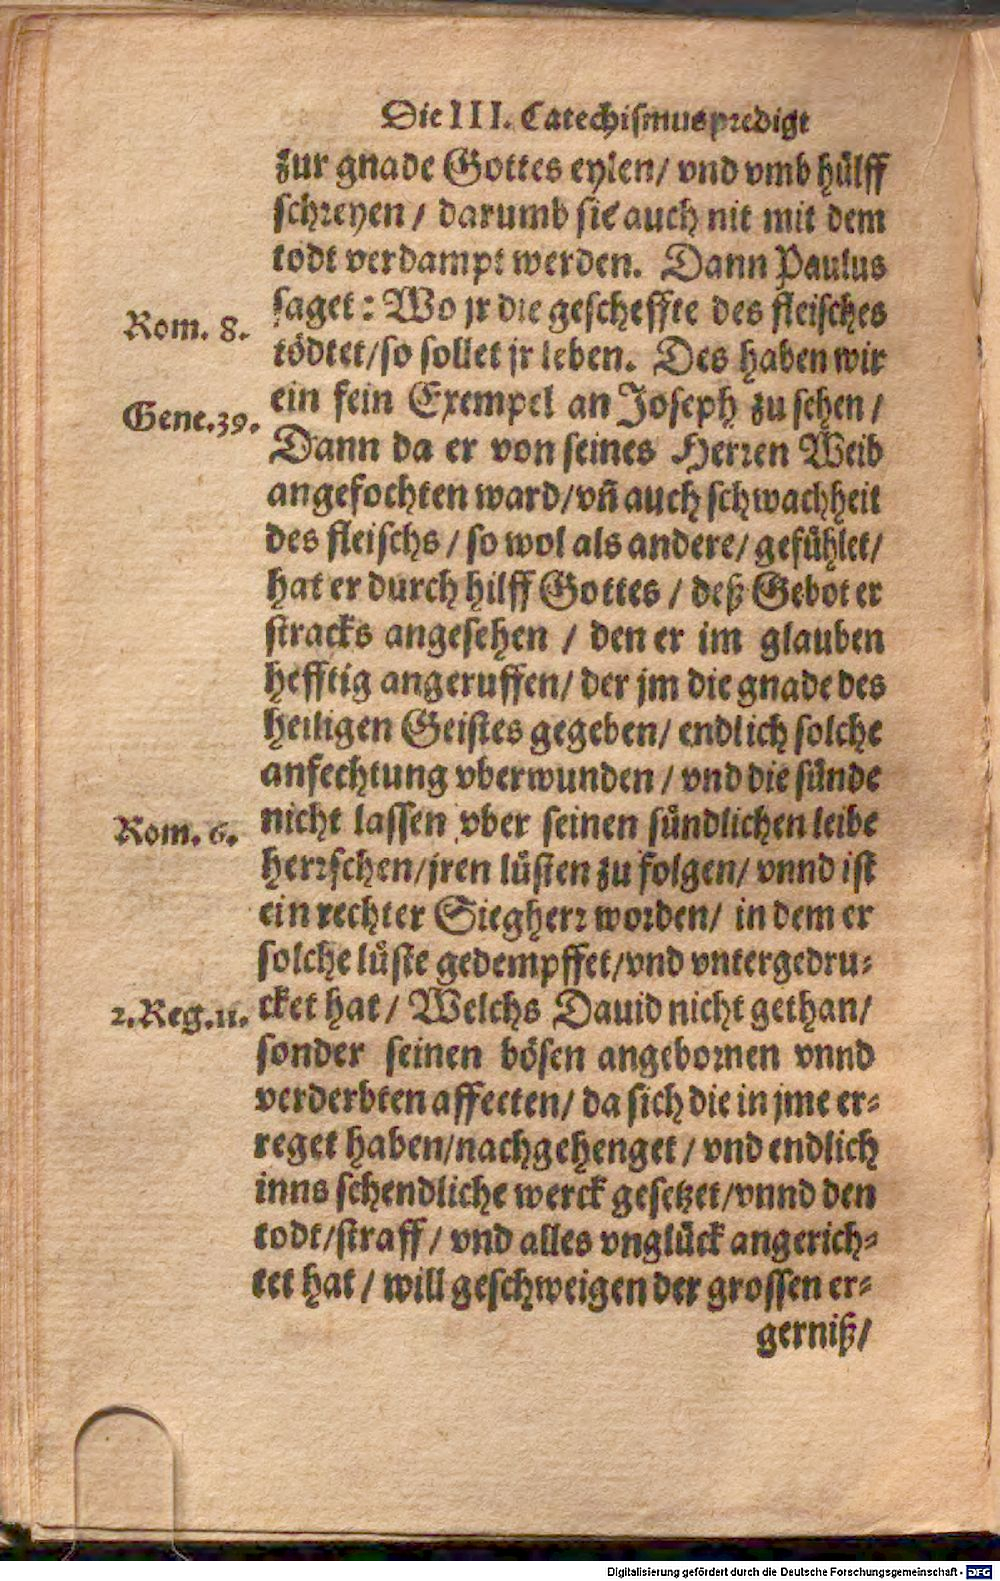 Die III. Catechismuspredigt
zur gnade Gottes eylen/ vnd vmb hülff
schreyen / darumb sie auch nit mit dem
todt verdampt werden. Dann Paulus
saget: Wo jr die gescheffte des fleisches
Rom. 8.
tödtet/so sollet jr leben. Des haben wir
ein fein Exempel an Joseph zu sehen /
Gene.39.
Dann da er von seines Herren Weib
angefochten ward/vñ auch schwachheit
des fleischs / so wol als andere/ gefühlet/
hat er durch hilff Gottes / deß Gebot er
stracks angesehen / den er im glauben
hefftig angeruffen/ der jm die gnade des
heiligen Geistes gegeben/ endlich solche
anfechtung vberwunden / vnd die sünde
nicht lassen vber seinen sündlichen leibe
Rom. 6.
herrschen/jren lüsten zu folgen/ vnnd ist
ein rechter Siegherr worden/ in dem er
solche lüste gedempffet/vnd vntergedru-
cket hat / Welchs Dauid nicht gethan/
2.Reg.11.
sonder seinen bösen angebornen vnnd
verderbten affecten/ da sich die in jme er-
reget haben/nachgehenget / vnd endlich
inns schendliche werck gesetzet/vnnd den
todt/straff / vnd alles vnglück angerich-
tet hat / will geschweigen der grossen er-
gerniß/
Digitalisierung gefördert durch die Deutsche Forschungsgemeinschaft - DFG